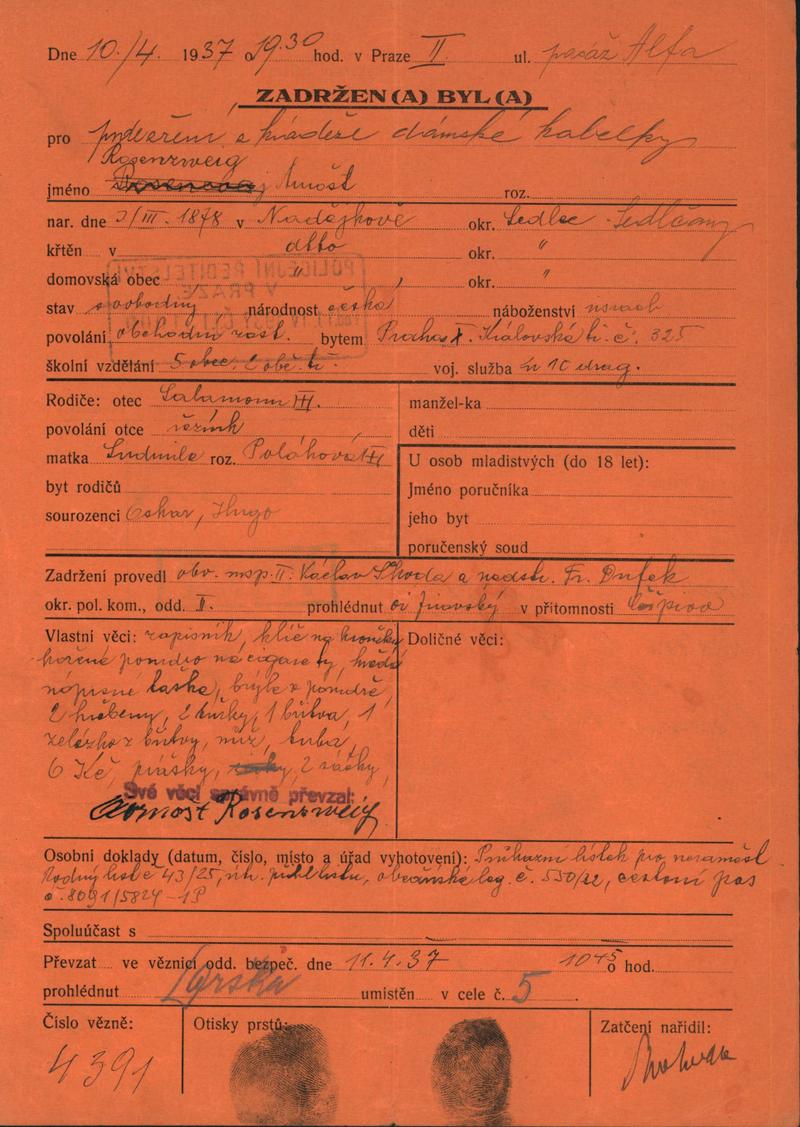 Dne 10./4. 1937 o 19.30 hod. v Praze II ul. pasáž Alfa
ZADRŽEN(A) BYL(A)
pro podezření z krádeže dámské kabelky
Rosenzweig
jméno Arnošt roz.
nar. dne 2/III. 1878 v Nadějkově okr. Sedlec - Sedlčany
křtěn v dtto okr. "
domovská obec " okr. "
POLICEJNÍ ŘEDITELSTVÍ
V PRAZE
stav svobodný, národnost česká náboženství israel
povolání obchodní zást. bytem Praha X. Královská tř. č. 325
školní vzdělání 5 obec. voj. služba u 10 drag.
Rodiče: otec Salamoun III. manžel-ka
povolání otce řezník děti
matka Ludmila roz. Poláková III U osob mladistvých (do 18 let):
byt rodičů Jméno poručníka
sourozenci Oskar, Hugo jeho byt
poručenský soud
Zadržení provedl obv. insp. II. Václav Škoda a nadstr. Fr. Dufek
okr. pol. kom., odd. II. prohlédnut v přítomnosti
Vlastní věci: zapisník, klíč na kroužku Doličné věci:
pouzdro na cigarety, hnědá
náprsní taška, brýle v pouzdře,
2 hřebeny, 2 tužky, 1 břitva, 1
želízko z břitvy, nůž, tuba,
6 Kč, prášky, 2 sáčky
Své věci správně převzal:
Arnošt Rosenzweig
Osobní doklady (datum, číslo, místo a úřad vyhotovení): Průkazní lístek pro nezaměst.
Rodný list č 43/25, občanská leg. č. 550/22, cestovní pas
č. 8091/5824 - 1P
Spoluúčast s
Převzat ve věznici odd. bezpeč. dne 11.4.37 o 10 45 hod.
prohlédnut umístěn v cele č. 5.
Číslo vězně: Otisky prstů: Zatčení nařídil:
4391